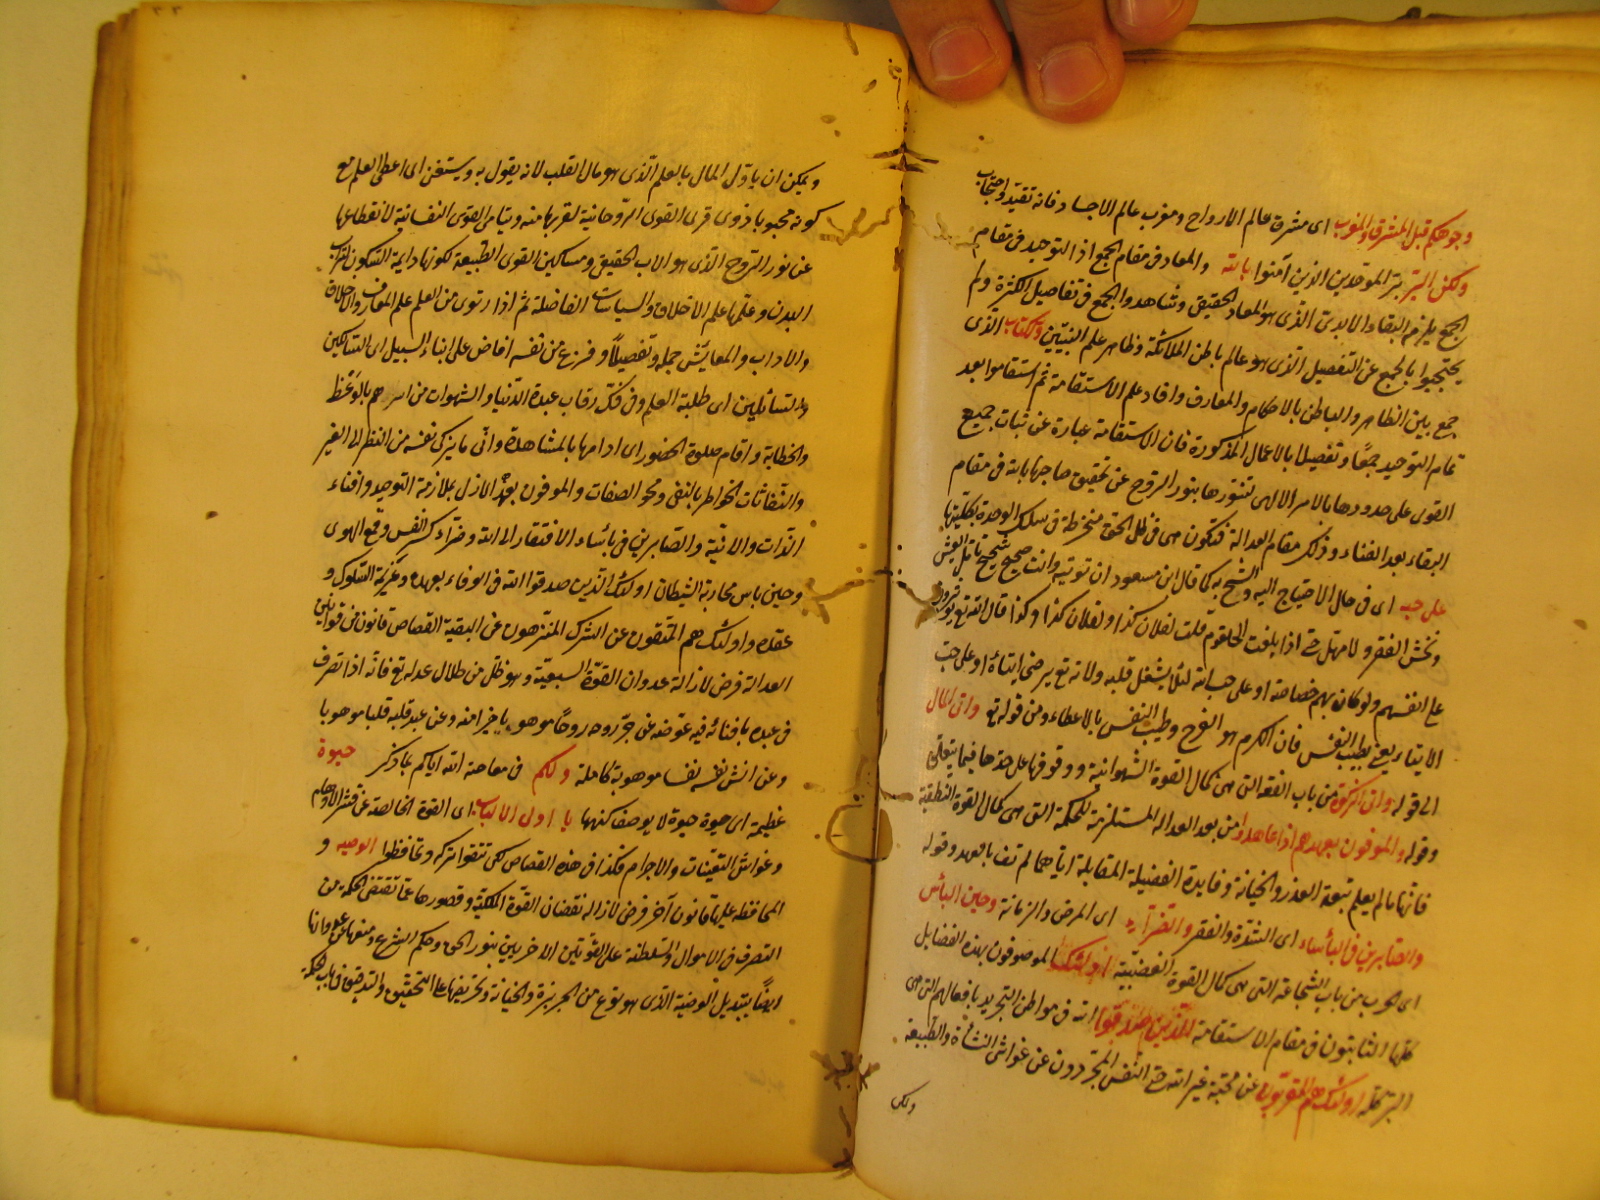 وجوهكم قبل المشرق والمغرب اى مشرق عالم الارواح ومغرب عالم الاجساد فانه تقيد واحتجاب
ولكن البر بر الموحدين الذين آمنوا بالله والمعاد فى مقام الجمع اذ التوحيد فى مقام
الجمع يلزمه البقاء الابدى الذى هو المعاد الحقيقى وشاهدوا الجمع فى تفاصيل الكثرة ولم
يحتجبوا بالجمع عن التفصيل الذى هو عالم باطن الملائكة وظاهر علم النبيين والكتاب الذى
جمع بين الظاهر والباطن بالاحكام والمعارف وافاد علم الاستقامة ثم استقاموا بعد
تمام التوحيد جمعا وتفصيلا بالاعمال المذكورة فان الاستقامة عبارة عن ثبات جميع
القوى على حدودها بالامر الالهى لتنورها بنور الروح عن تحقق صاحبها بالله فى مقام
البقاء بعد الفناء وذلك مقام العدالة فتكون هى فى ظل الحق منخرطة فى سلك الوحدة بكليتها
على حبه اى فى حال الاحتياج اليه والشح به كما قال ابن مسعود ان تؤتيه وانت صحيح شحيح تأمل العيش
وتخشى الفقر ولا تمهل حتى اذا بلغت الحلقوم قلت لفلان كذا ولفلان كذا وكذا قال الله تع ويؤثرون
على انفسهم ولو كان بهم خصاصة او على حب الله لئلا يشغل قلبه ولانه تع يرضى بايتائه او على حب
الايتاء يعنى بطيب النفس فان الكرم هو الفرح وطيب النفس بالاعطاء ومن قوله تع وآتى المال
الى قوله وآتى الزكوة من باب العفة التى هى كمال القوة الشهوانية ووقوفها على حدها فيما يتعلق
وقوله والموفون بعهدهم اذا عاهدوا من بعد العدالة المستلزمة للحكمة التى هى كمال القوة النطقية
فانها ما لم يعلم تبعة الغدر والخيانة وفايدة الفضيلة المقابلة اياهما لم تف بالعهد وقوله
والصابرين فى البأساء اى الشدة والفقر والضراء اى المرض والزمانة وحين البأس
اى الحرب من باب الشجاعة التى هى كمال القوة الغضبية اولئك الموصوفون بهذه الفضايل
كلها الثابتون فى مقام الاستقامة الذين صدقوا الله فى مواطن التجريد بافعالهم التى هى
البر كله اولئك هم المتقون عن محبة غير الله حتى النفس المجردون عن غواشى النشأة والطبيعة
ويمكن
٣٣
ويمكن ان يأول المال بالعلم الذى هو مال القلب لانه يقوى به ويستغنى اى اعطى العلم مع
كونه محبوبا ذوى قربى القوى الروحانية لقربها منه ويتامى القوى النفسانية لانقطاعها
عن نور الروح الذى هو الاب الحقيقى ومساكين القوى الطبيعة لكونها دايمة السكون لتراب
البدن وعلمها علم الاخلاق والسياسات الفاضلة ثم اذا ارتوى من العلم علم المعارف والاخلاق
والآداب والمعايش جملة وتفصيلا وفرغ من نفسه افاض على ابناء السبيل اى السالكين
والسائلين اى طلبة العلم وفى فك رقاب عبدة الدنيا والشهوات من اسرهم بالوعظ
والخطابة واقام صلوة الحضور اى ادامها بالمشاهدة وآتى ما يزكى نفسه من النظر الى الغير
والتفاتات الخواطر بالنفى ومحو الصفات والموفون بعهد الازل بملازمة التوحيد وافناء
الذات والانية والصابرين فى بأساء الافتقار الى الله وضراء كسر النفس وقمع الهوى
وحين باس محاربة الشيطان اولئك الذين صدقوا الله فى الوفاء بعهده وعزيمة السلوك و
عقده واولئك هم المتقون عن الشرك المنزهون عن البقية القصاص قانون من قوانين
العدالة فرض لازالة عدوان القوة السبعية وهو ظل من ظلال عدله تع فانه اذا تصرف
فى عبده بافنائه فيه عوضه عن حر روحه روحا موهوبا خيرا منه وعن عبد قلبه قلبا موهوبا
وعن انثى نفسه نفسا موهوبة كاملة ولكم فى مقاصة الله اياكم بما ذكر حيوة
عظيمة اى حيوة حيوة لا يوصف كنهها يا اولى الالباب اى القوة الخالصة عن قشر الاوهام
وغواشى التعينات والاجرام فكذا فى هذه القصاص لكى تتقوا تركه وتحافظوا الوصيه و
المحافظة عليها قانون آخر فرض لازالة نقصان القوة الملكية وقصورها عما تقتضى الحكمة من
التصرف فى الاموال والسلطنة على القوتين الاخريين بنور الحق وحكم الشرع ومنعها عن عدوانها
ايضا بتبديل الوصية الذى هو نوع من الجربزة والخيانة وتحريضها على التحقيق والتدقيق فى باب الحكمة